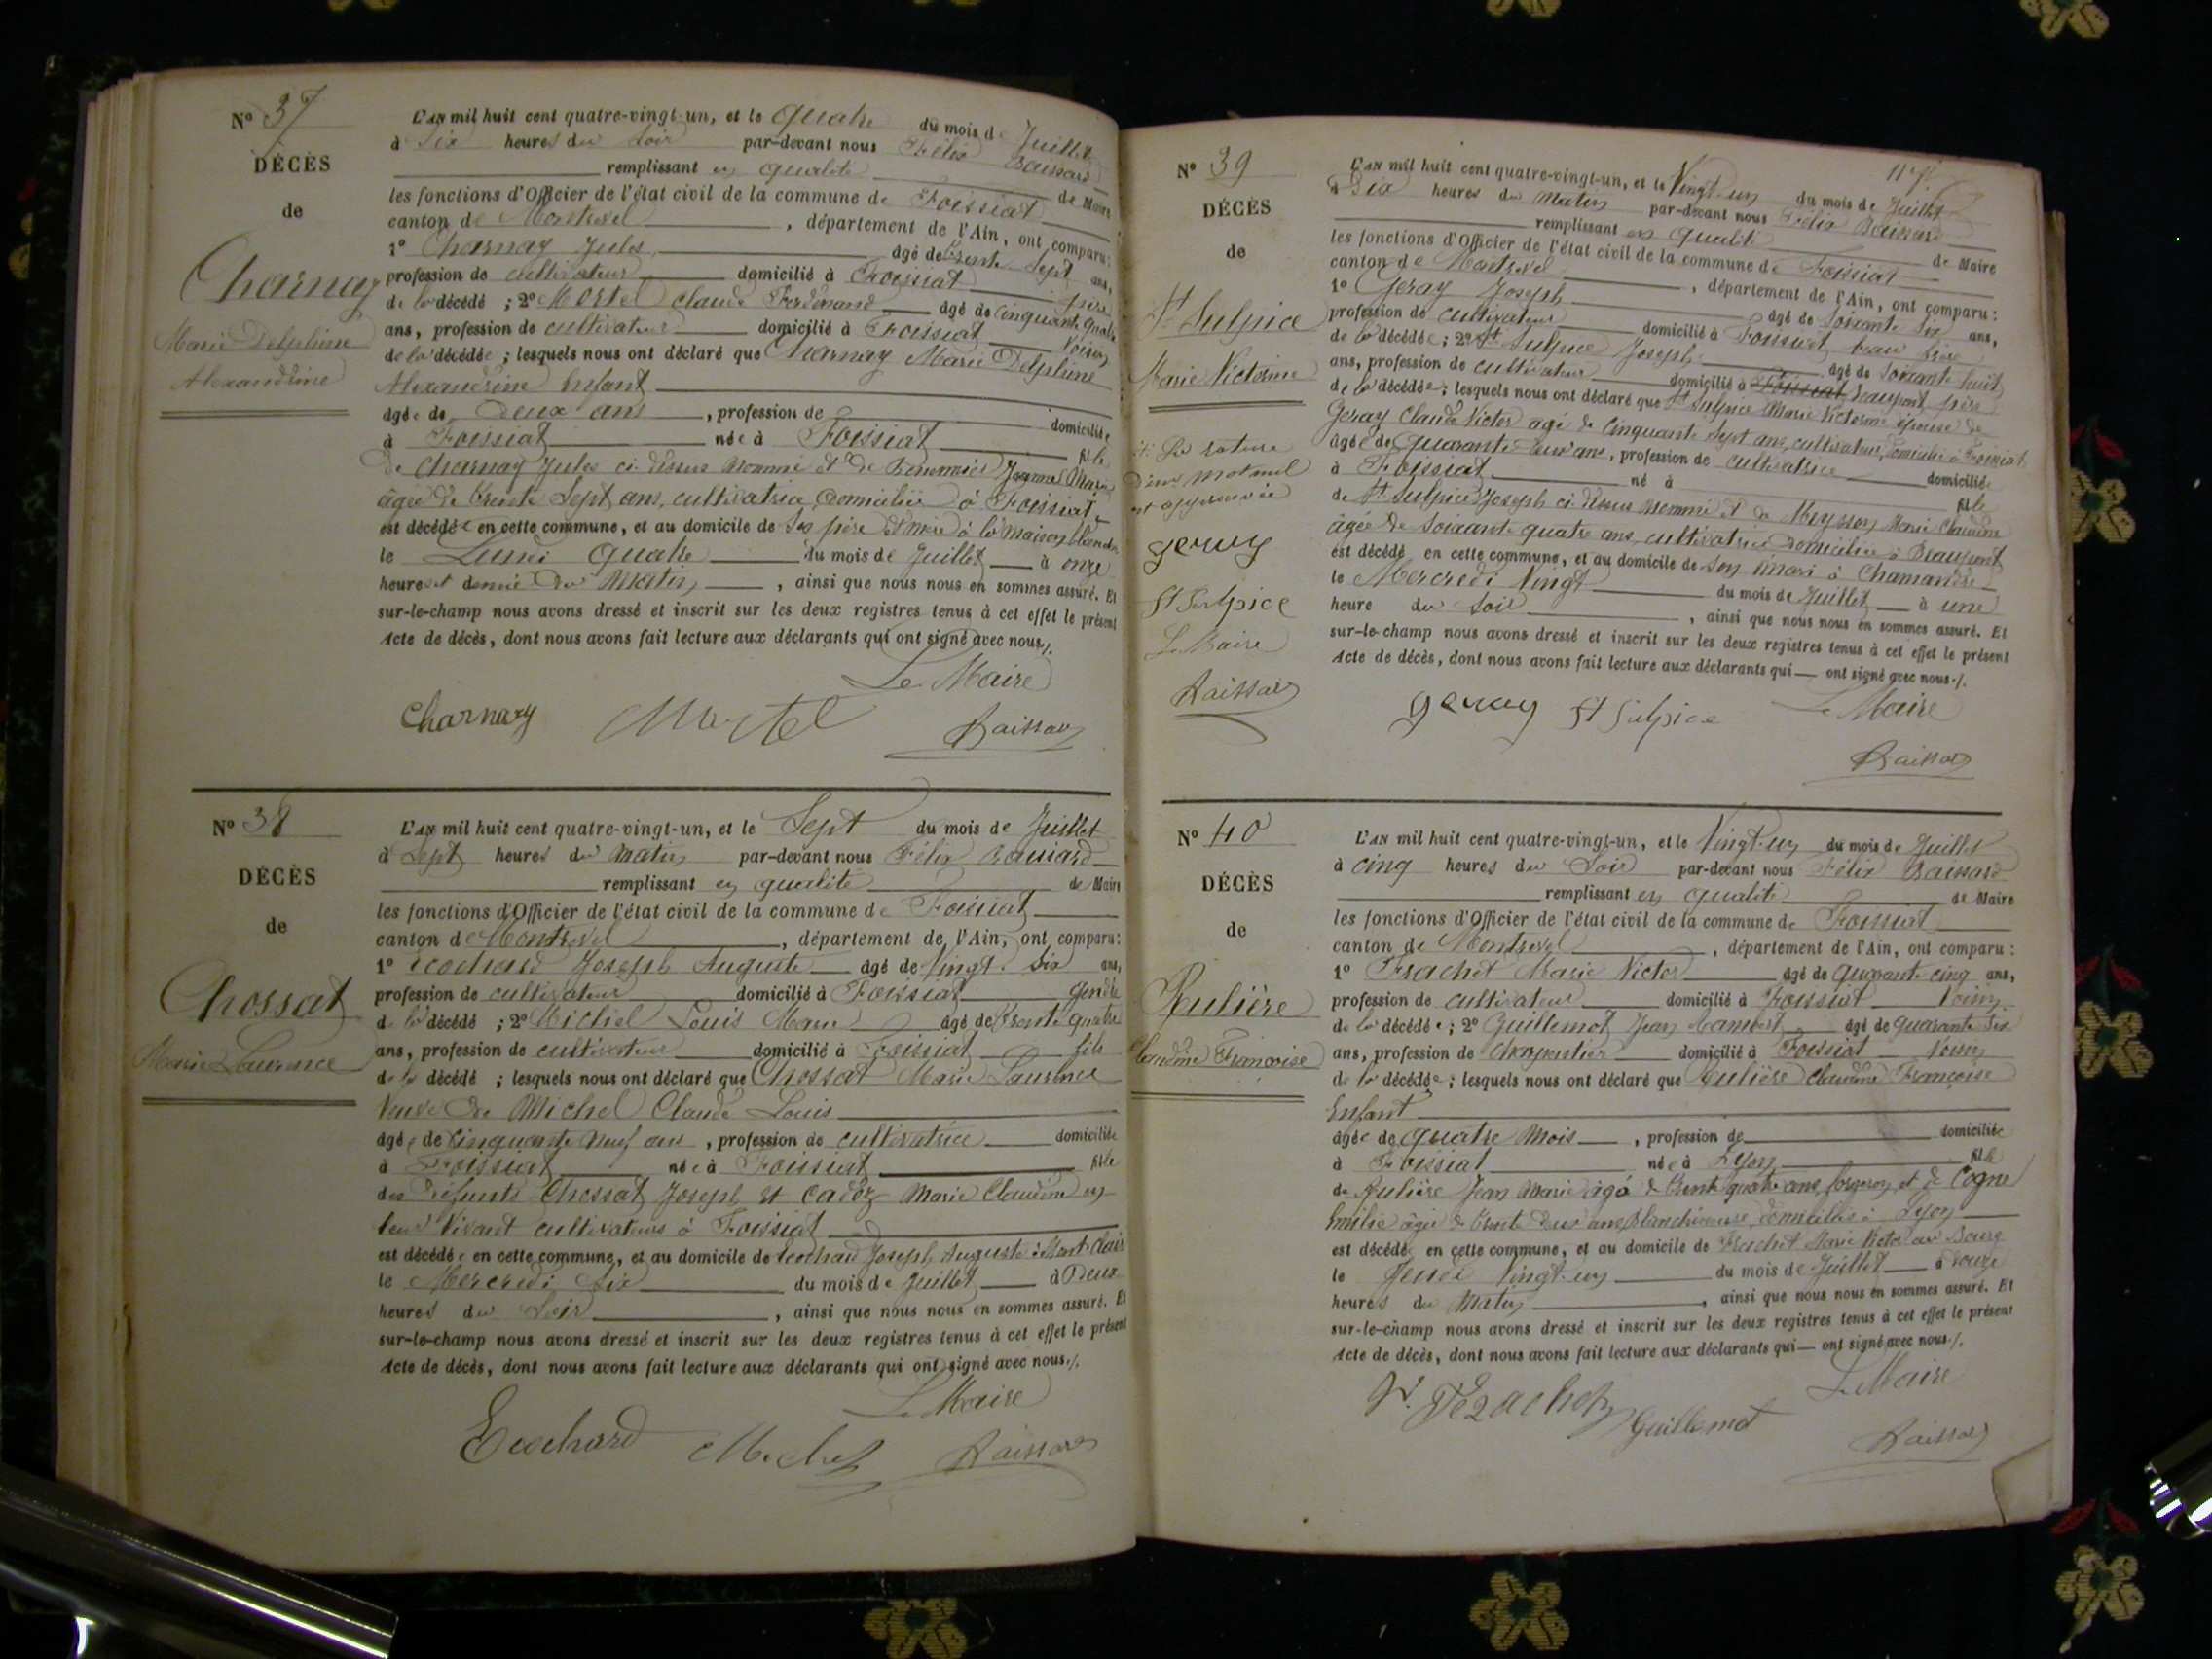 N° 37
DÉCÈS
de
Charnay
Marie Delphine
Alexandrine
L'AN mil huit cent quatre-vingt-un, et le quatre du mois de Juillet
à Six heures du Soir par-devant nous Félix Baissard
remplissant en qualité de Maire
les fonctions d'Officier de l'état civil de la commune de Foissiat
canton de Montrevel, département de l'Ain, ont comparu:
1° Charnay Jules âgé de trente Sept ans,
profession de cultivateur domicilié à Foissiat père
de la décédé ; 2° Mortel Claude Ferdinand âgé de cinquante quatre
ans, profession de cultivateur domicilié à Foissiat Voisin
de la décédée ; lesquels nous ont déclaré que Charnay Marie Delphine
Alexandrine Enfant
âgée de Deux ans, profession de domiciliée
à Foissiat née à Foissiat fille
de Charnay Jules ci dessus nommé et de Jeanne Marie
âgée de trente Sept ans, cultivatrice domiciliée à Foissiat
est décédée en cette commune, et au domicile de Ses père et mère à la maison blanche
le Lundi quatre du mois de Juillet à onze
heures et demie du Matin, ainsi que nous nous en sommes assuré. Et
sur-le-champ nous avons dressé et inscrit sur les deux registres tenus à cet effet le présent
Acte de décès, dont nous avons fait lecture aux déclarants qui ont signé avec nous./.
Le Maire
Charnay Mortel Baissard
N° 38
DÉCÈS
de
Chossat
Marie Laurence
L'AN mil huit cent quatre-vingt-un, et le Sept du mois de Juillet
à Sept heures du Matin par-devant nous Félix Baissard
remplissant en qualité de Maire
les fonctions d'Officier de l'état civil de la commune de Foissiat
canton de Montrevel, département de l'Ain, ont comparu:
1° Ecochard Joseph Auguste âgé de Vingt Six ans,
profession de cultivateur domicilié à Foissiat gendre
de la décédé ; 2° Michel Louis Marie âgé de trente quatre
ans, profession de cultivateur domicilié à Foissiat fils
de la décédé ; lesquels nous ont déclaré que Chossat Marie Laurence
Veuve de Michel Claude Louis
âgée de Cinquante Neuf ans, profession de cultivatrice domiciliée
à Foissiat née à Foissiat fille
des défunts Chossat Joseph et Cadoz Marie Claudine en
leur Vivant cultivateurs à Foissiat
est décédée en cette commune, et au domicile de Ecochard Joseph Auguste à Mont Clair
le Mercredi Six du mois de Juillet à Deux
heures du Soir, ainsi que nous nous en sommes assuré. Et
sur-le-champ nous avons dressé et inscrit sur les deux registres tenus à cet effet le présent
Acte de décès, dont nous avons fait lecture aux déclarants qui ont signé avec nous./.
Le Maire
Ecochard Michel Baissard
N° 39
DÉCÈS
de
St Sulpice
Marie Victorine
La rature
d'un mot nul
est approuvée
geray
St Sulpice
Le Maire
Baissard
117
L'AN mil huit cent quatre-vingt-un, et le Vingt-un du mois de Juillet
à Dix heures du Matin par-devant nous Félix Baissard
remplissant en qualité de Maire
les fonctions d'Officier de l'état civil de la commune de Foissiat
canton de Montrevel, département de l'Ain, ont comparu:
1° Geray Joseph âgé de Soixante Six ans,
profession de cultivateur domicilié à Foissiat beau frère
de la décédée ; 2° St Sulpice Joseph âgé de Soixante huit
ans, profession de cultivateur domicilié à Foissiat Beaupont père
de la décédée ; lesquels nous ont déclaré que St Sulpice Marie Victorine épouse de
Geray Claude Victor âgé de Cinquante Sept ans, cultivateur, domicilié à Foissiat
âgée de quarante deux ans, profession de cultivatrice domiciliée
à Foissiat né à fille
de St Sulpice Joseph ci dessus nommé et de Meysson Marie Claudine
âgée de Soixante quatre ans, cultivatrice domiciliée à Beaupont
est décédé en cette commune, et au domicile de Son mari à Chamandre
le Mercredi Vingt du mois de Juillet à une
heure du Soir, ainsi que nous nous en sommes assuré. Et
sur-le-champ nous avons dressé et inscrit sur les deux registres tenus à cet effet le présent
Acte de décès, dont nous avons fait lecture aux déclarants qui — ont signé avec nous./.
geray St Sulpice Le Maire
Baissard
N° 40
DÉCÈS
de
Rulière
Claudine Françoise
L'AN mil huit cent quatre-vingt-un, et le Vingt-un du mois de Juillet
à cinq heures du Soir par-devant nous Félix Baissard
remplissant en qualité de Maire
les fonctions d'Officier de l'état civil de la commune de Foissiat
canton de Montrevel, département de l'Ain, ont comparu:
1° Frachet Marie Victor âgé de quarante cinq ans,
profession de cultivateur domicilié à Foissiat Voisin
de la décédée ; 2° Guillemot Jean Lambert âgé de quarante Six
ans, profession de charpentier domicilié à Foissiat Voisin
de la décédée ; lesquels nous ont déclaré que Rulière Claudine Françoise
Enfant
âgée de quatre Mois, profession de domiciliée
à Foissiat née à Lyon fille
de Rulière Jean Marie âgé de trente quatre ans, forgeron et de Cogne
Emilie âgée de trente deux ans, Blanchisseuse domiciliés à Lyon
est décédé en cette commune, et au domicile de Frachet Marie Victor au Bourg
le Jeudi Vingt-un du mois de Juillet à onze
heures du Matin, ainsi que nous nous en sommes assuré. Et
sur-le-champ nous avons dressé et inscrit sur les deux registres tenus à cet effet le présent
Acte de décès, dont nous avons fait lecture aux déclarants qui — ont signé avec nous./.
Le Maire
Guillemot Baissard